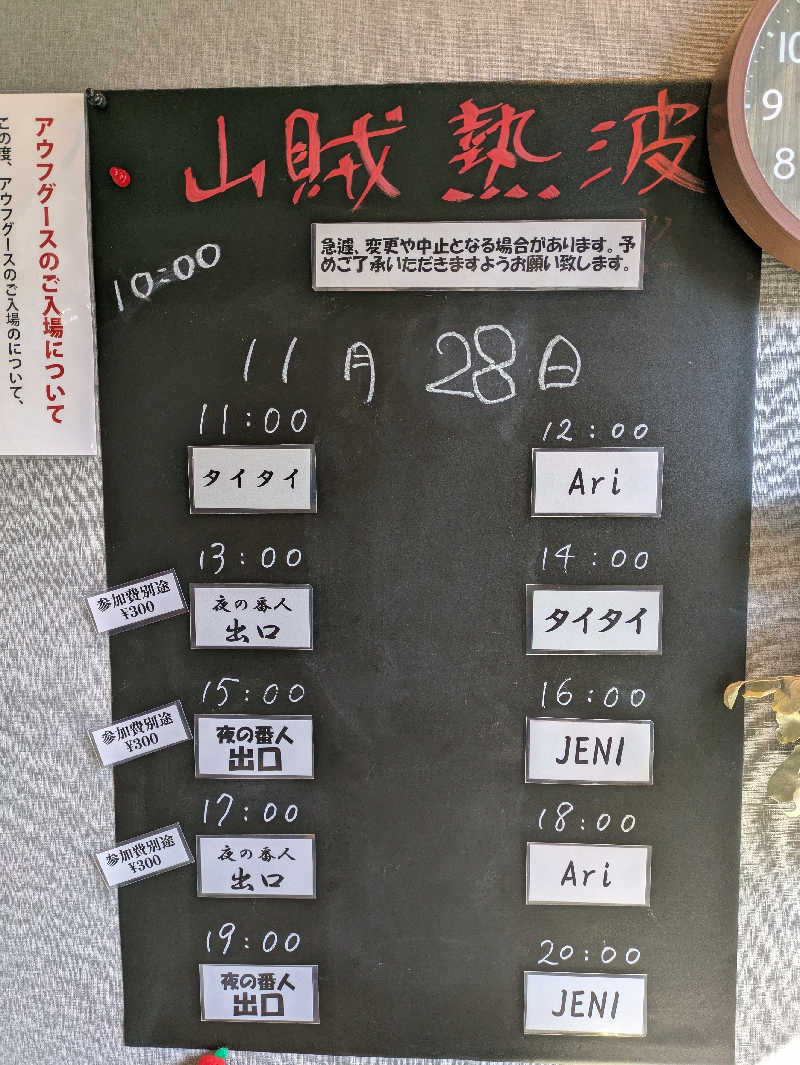 山賊 熱波
急遽、変更や中止となる場合があります。予
めご了承いただきますようお願い致します。
10:00
11月28日
11:00
タイタイ
12:00
Ari
13:00
参加費別途
¥300
夜の番人
出口
14:00
タイタイ
15:00
参加費別途
¥300
夜の番人
出口
16:00
JENI
17:00
参加費別途
¥300
夜の番人
出口
18:00
Ari
19:00
夜の番人
出口
20:00
JENI
アウフグースのご入場について
この度、アウフグースのご入場のについて、
10
9
8